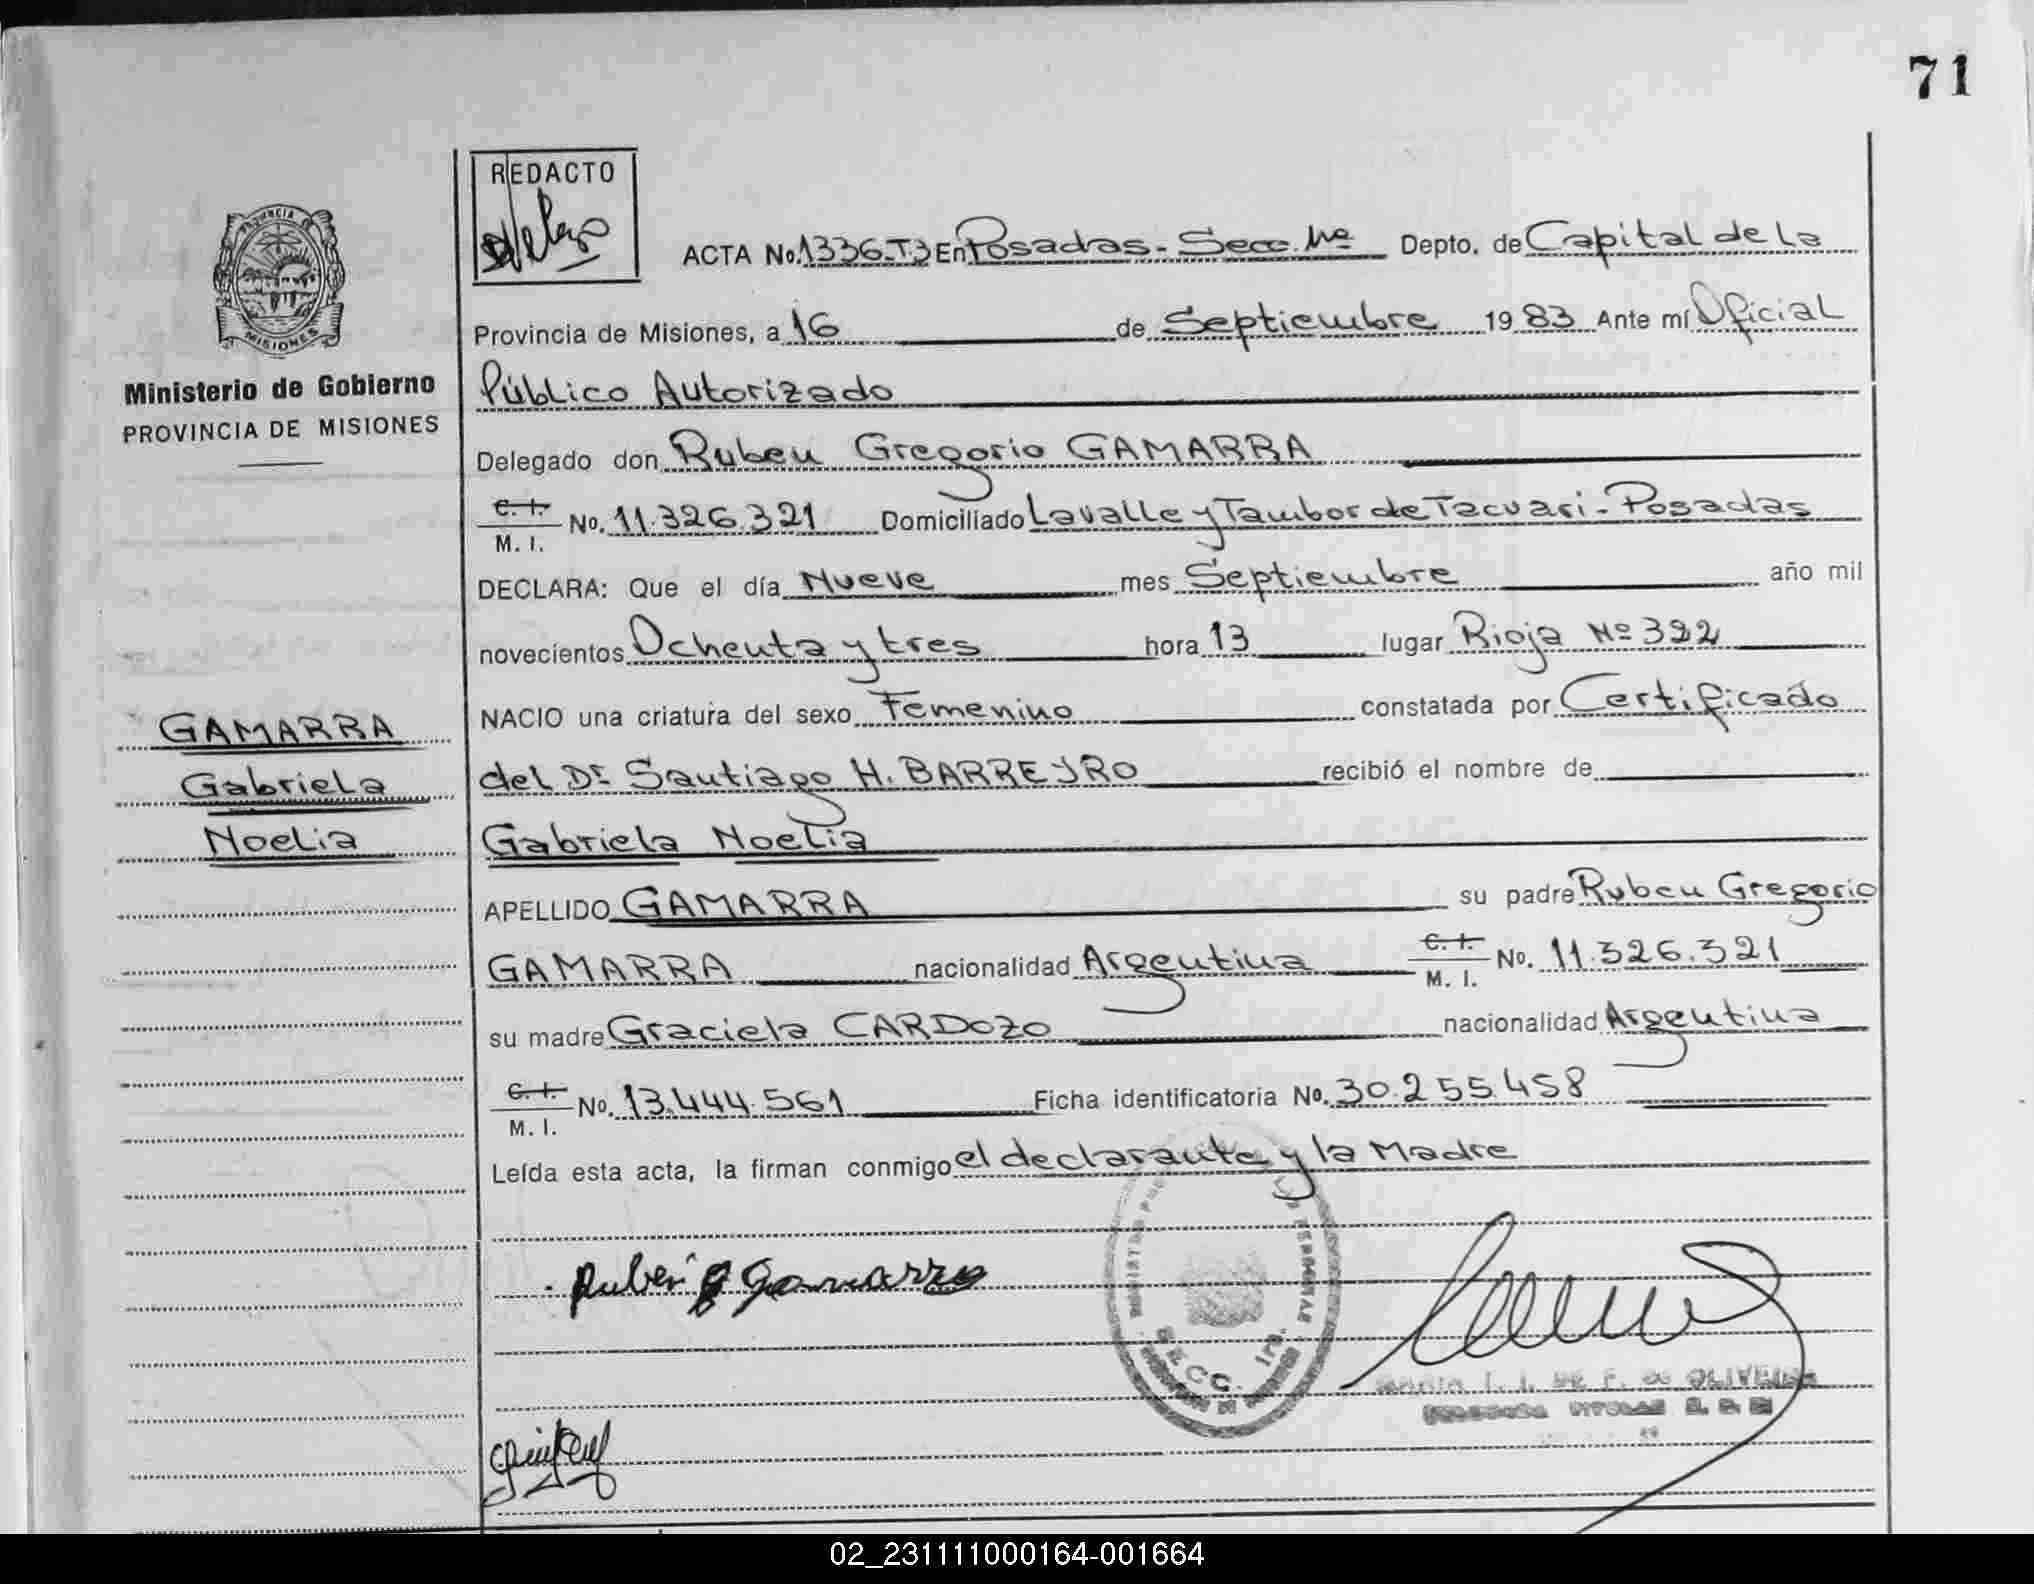 71
REDACTO
PROVINCIA DE
MISIONES
Ministerio de Gobierno
PROVINCIA DE MISIONES
GAMARRA
Gabriela
Noelia
ACTA No. 1336.T3 En Posadas - Secc. Depto. de Capital de La
Provincia de Misiones, a 16 de Septiembre 1983 Ante mí Oficial
Público Autorizado
Delegado don Ruben Gregorio GAMARRA
C. I. M. I. No. 11.326.321 Domiciliado Lavalle y Tambor de Tacuari - Posadas
DECLARA: Que el día Nueve mes Septiembre año mil
novecientos Ochenta y tres hora 13 lugar Rioja Nº 322
NACIO una criatura del sexo Femenino constatada por Certificado
del Dr Santiago H. BARREYRO recibió el nombre de
Gabriela Noelia
APELLIDO GAMARRA su padre Ruben Gregorio
GAMARRA nacionalidad Argentina C. I. M. I. No. 11.326.321
su madre Graciela CARDOZO nacionalidad Argentina
C. I. M. I. No. 13.444.561 Ficha identificatoria No. 30.255.458
Leída esta acta, la firman conmigo el declarante y la Madre
Rubén G Gamarra
02_231111000164-001664